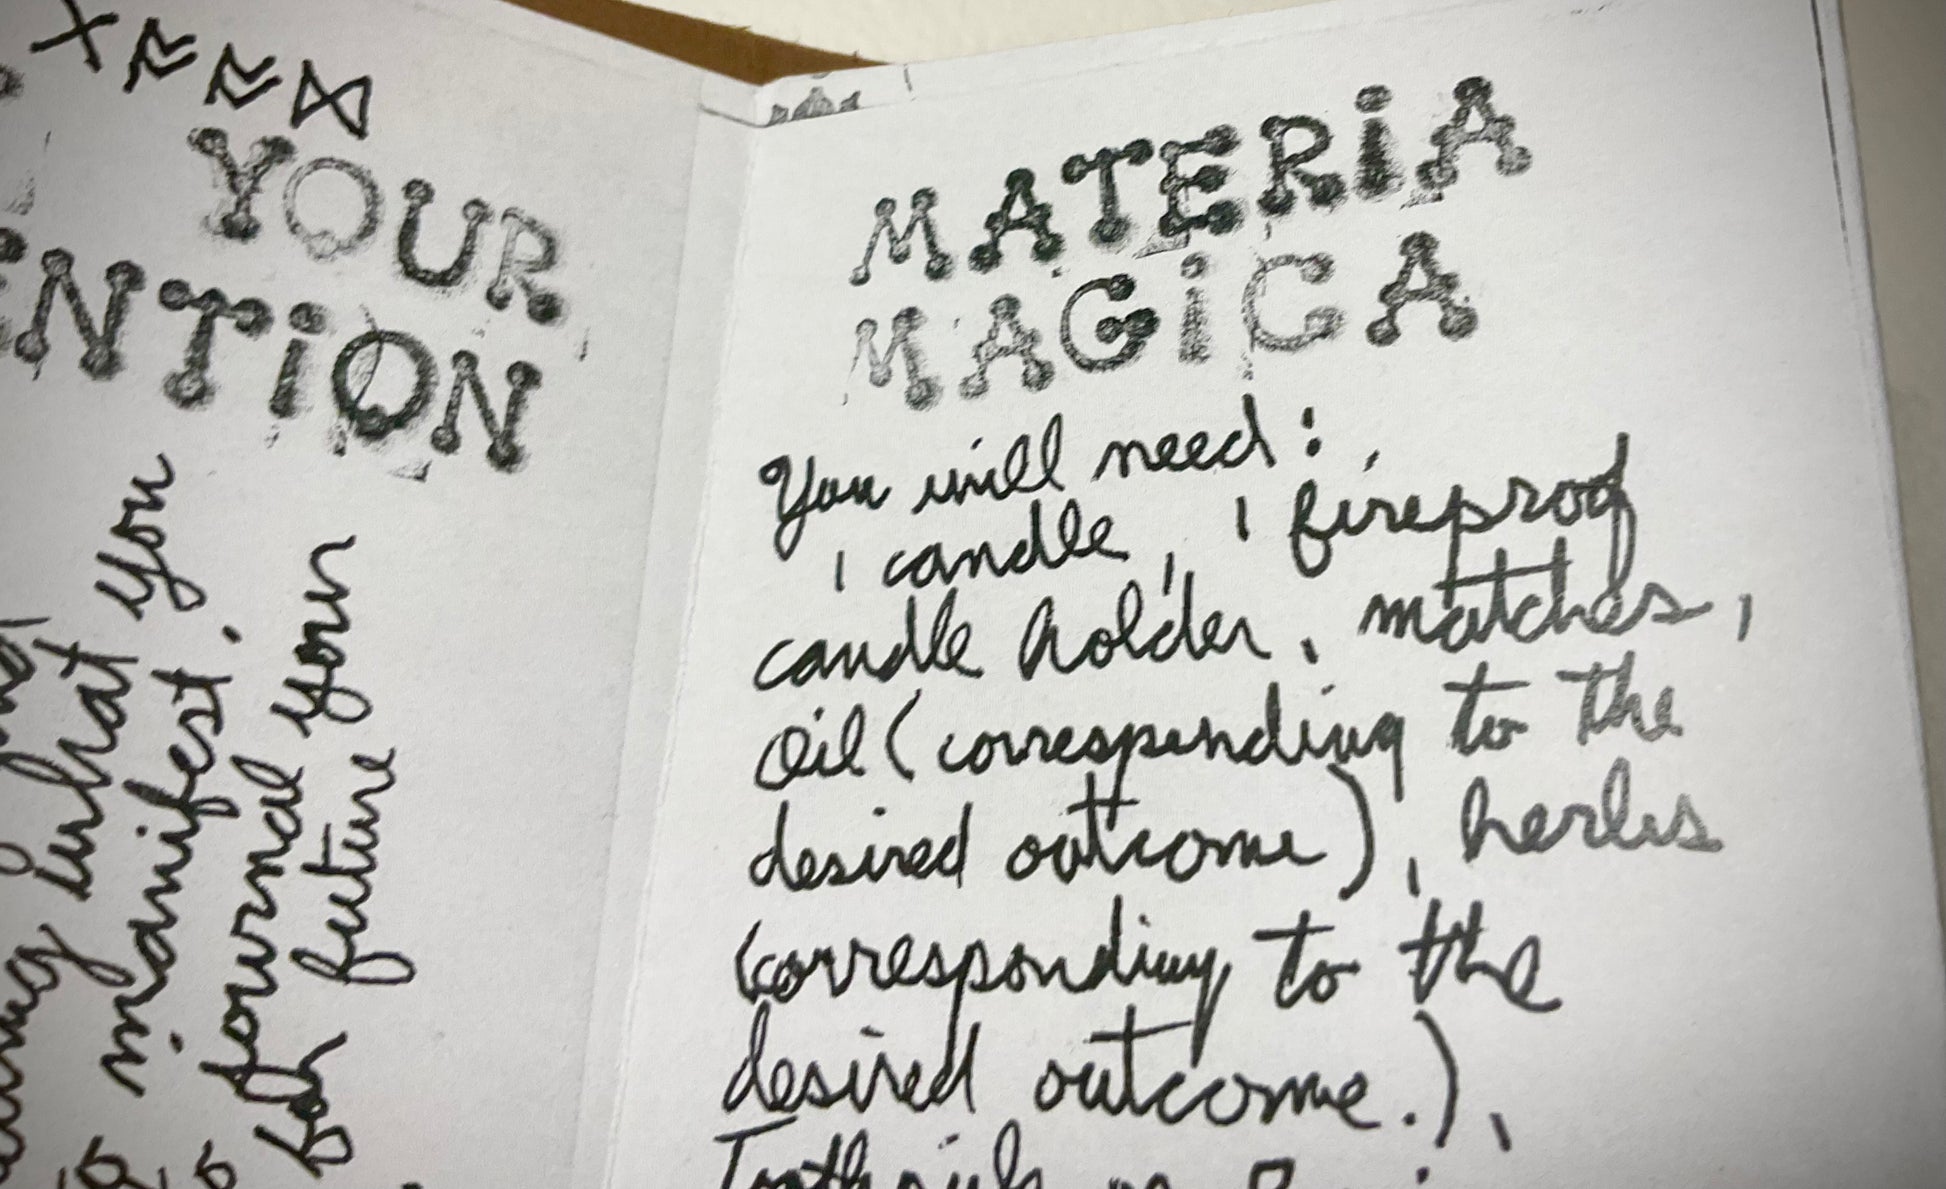 YOUR
NTION
what you
manifest.
journal your
for future
MATERIA
MAGICA
You will need:
1 candle, 1 fireproof
candle holder, matches,
oil (corresponding to the
desired outcome), herbs
(corresponding to the
desired outcome.),
Toothpick or